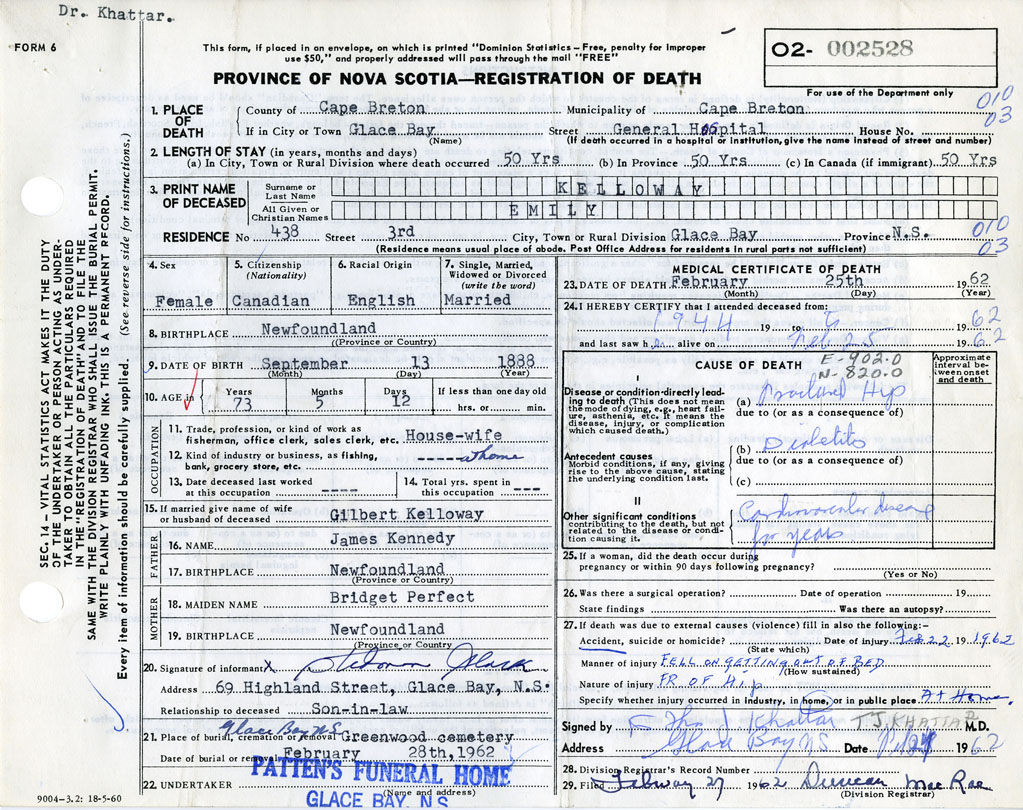 Dr. Khattar.
FORM 6
This form, if placed in an envelope, on which is printed "Dominion Statistics – Free, penalty for improper
use $50," and properly addressed will pass through the mail "FREE"
O2- 002528
For use of the Department only
PROVINCE OF NOVA SCOTIA—REGISTRATION OF DEATH
010
03
1. PLACE OF DEATH
County of Cape Breton Municipality of Cape Breton
If in City or Town Glace Bay Street General Hospital House No.
(Name) (If death occurred in a hospital or institution, give the name instead of street and number)
2. LENGTH OF STAY (in years, months and days)
(a) In City, Town or Rural Division where death occurred 50 Yrs (b) In Province 50 Yrs (c) In Canada (if immigrant) 50 Yrs
3. PRINT NAME OF DECEASED
Surname or Last Name KELLOWAY
All Given or Christian Names EMILY
RESIDENCE No 438 Street 3rd City, Town or Rural Division Glace Bay Province N.S.
(Residence means usual place of abode. Post Office Address for residents in rural parts not sufficient)
010
03
4. Sex
Female
5. Citizenship (Nationality)
Canadian
6. Racial Origin
English
7. Single, Married, Widowed or Divorced (write the word)
Married
8. BIRTHPLACE Newfoundland
(Province or Country)
9. DATE OF BIRTH September 13 1888
(Month) (Day) (Year)
10. AGE in Years 73 Months 5 Days 12 If less than one day old
hrs. or min.
OCCUPATION
11. Trade, profession, or kind of work as
fisherman, office clerk, sales clerk, etc. House-wife
12. Kind of industry or business, as fishing,
bank, grocery store, etc. ----- at home
13. Date deceased last worked
at this occupation ----
14. Total yrs. spent in
this occupation ---
15. If married give name of wife
or husband of deceased Gilbert Kelloway
FATHER
16. NAME James Kennedy
17. BIRTHPLACE Newfoundland
(Province or Country)
MOTHER
18. MAIDEN NAME Bridget Perfect
19. BIRTHPLACE Newfoundland
(Province or Country)
20. Signature of informant X
Address 69 Highland Street, Glace Bay, N.S.
Relationship to deceased Son-in-law
Glace Bay N.S
21. Place of burial, cremation or removal Greenwood cemetery
Date of burial or removal February 28th, 1962
22. UNDERTAKER PATTEN'S FUNERAL HOME
(Name and address)
GLACE BAY, N.S
9004-3.2: 18-5-60
MEDICAL CERTIFICATE OF DEATH
23. DATE OF DEATH February 25th 1962
(Month) (Day) (Year)
24. I HEREBY CERTIFY that I attended deceased from:
1944 19 to 1962
and last saw h er alive on Feb 25 1962
CAUSE OF DEATH
E-902.0
N-820.0
Approximate interval between onset and death
I
Disease or condition directly leading to death (This does not mean the mode of dying, e.g., heart failure, asthenia, etc. It means the disease, injury, or complication which caused death.)
(a) Hip
due to (or as a consequence of)
Antecedent causes
Morbid conditions, if any, giving rise to the above cause, stating the underlying condition last.
(b) Diabetits
due to (or as a consequence of)
(c)
II
Other significant conditions
contributing to the death, but not related to the disease or condition causing it.
Cardiovascular disease
for years
25. If a woman, did the death occur during
pregnancy or within 90 days following pregnancy?
(Yes or No)
26. Was there a surgical operation? Date of operation 19
State findings Was there an autopsy?
27. If death was due to external causes (violence) fill in also the following:-
Accident, suicide or homicide? Date of injury Feb 22 19 1962
(State which)
Manner of injury FELL ON GETTING OUT OF BED
(How sustained)
Nature of injury FR OF Hip
Specify whether injury occurred in industry, in home, or in public place At Home
Signed by Khattar T.J. KHATTAR M.D.
Address Glace Bay NS Date 1962
28. Division Registrar's Record Number
29. Filed February 27 1962 Duncan MacRae
(Division Registrar)
SEC. 14 – VITAL STATISTICS ACT MAKES IT THE DUTY
OF THE UNDERTAKER OR PERSON ACTING AS UNDER-
TAKER TO OBTAIN ALL THE PARTICULARS REQUIRED
IN THE "REGISTRATION OF DEATH" AND TO FILE THE
SAME WITH THE DIVISION REGISTRAR WHO SHALL ISSUE THE BURIAL PERMIT.
WRITE PLAINLY WITH UNFADING INK. THIS IS A PERMANENT RECORD.
Every item of information should be carefully supplied. (See reverse side for instructions.)